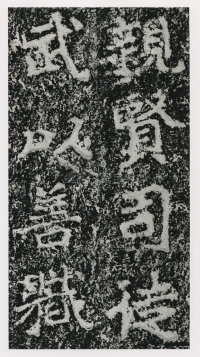 親賢司徒
武以善職